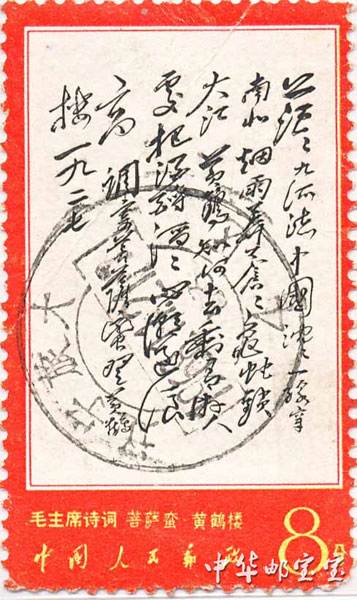 茫〻九派流中國沈〻一线穿
南北烟雨莽苍〻龟蛇锁
大江 黄鹤知何去剩有游人
處把酒酹滔〻心潮逐浪
高 调寄菩萨蛮 登黄鹤
楼 一九二七
毛主席诗词 菩萨蛮·黄鹤楼
中国人民邮政
8分
中华邮宝宝